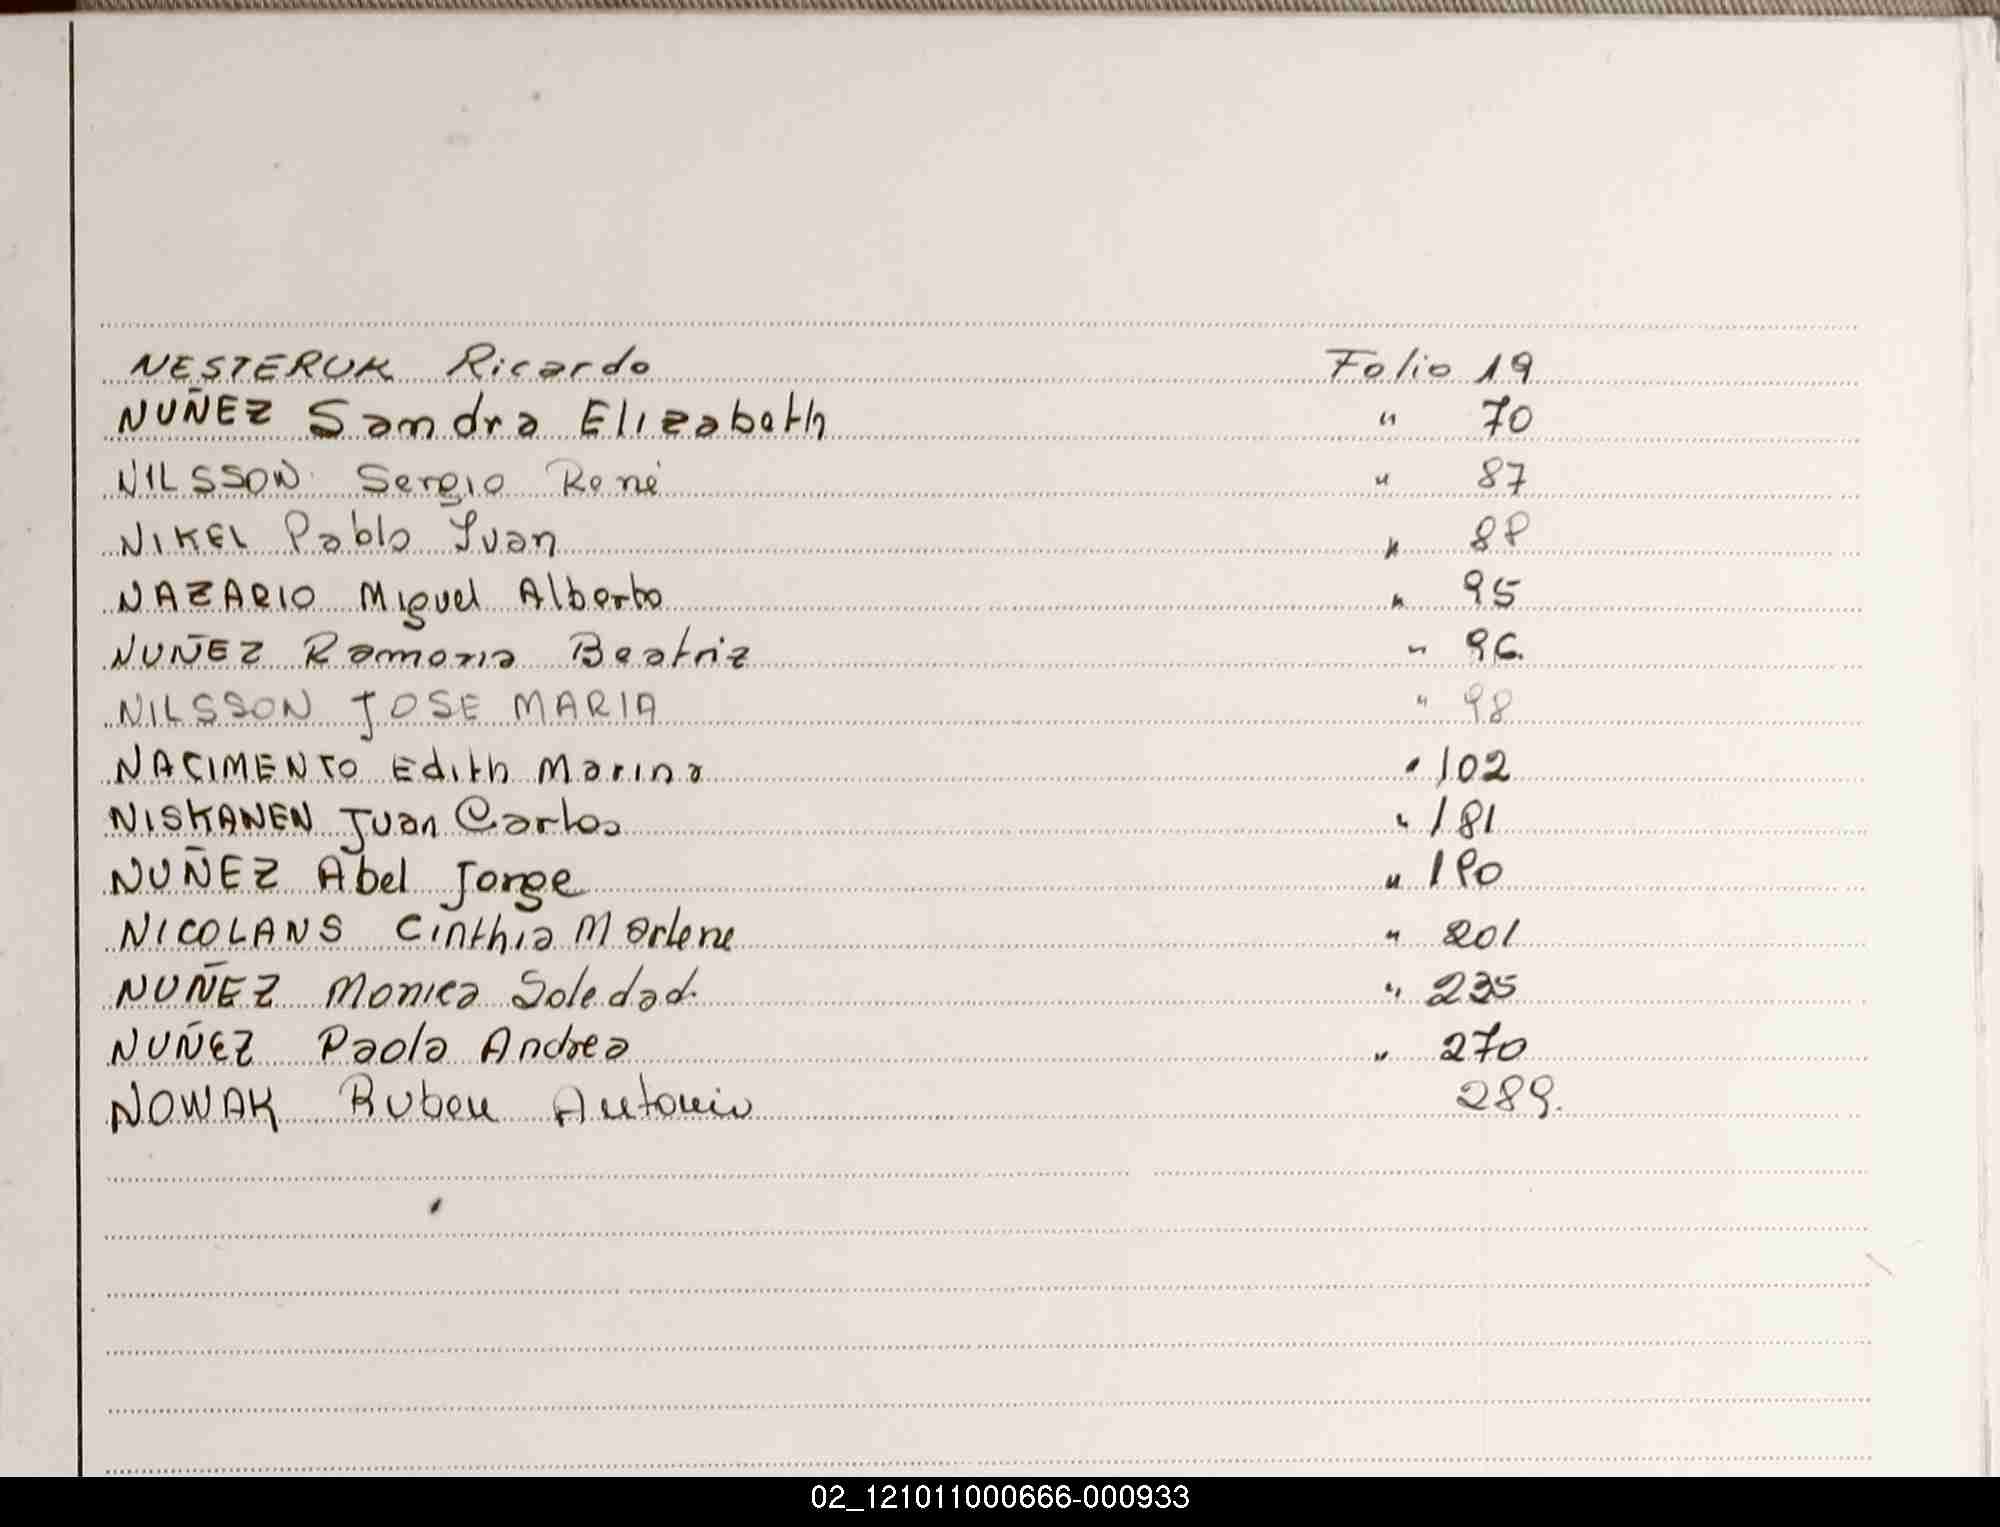 NESTERUK Ricardo Folio 19
NUÑEZ Sandra Elizabeth " 70
NILSSON Sergio René " 87
NIKEL Pablo Ivan " 88
NAZARIO Miguel Alberto " 95
NUÑEZ Ramona Beatriz " 96
NILSSON JOSE MARIA " 98
NACIMENTO Edith Marina " 102
NISKANEN Juan Carlos " 181
NUÑEZ Abel Jorge " 190
NICOLANS Cinthia Marlene " 201
NUÑEZ Monica Soledad " 235
NUÑEZ Paola Andrea " 270
NOWAK Ruben Antonio 289.
02_121011000666-000933